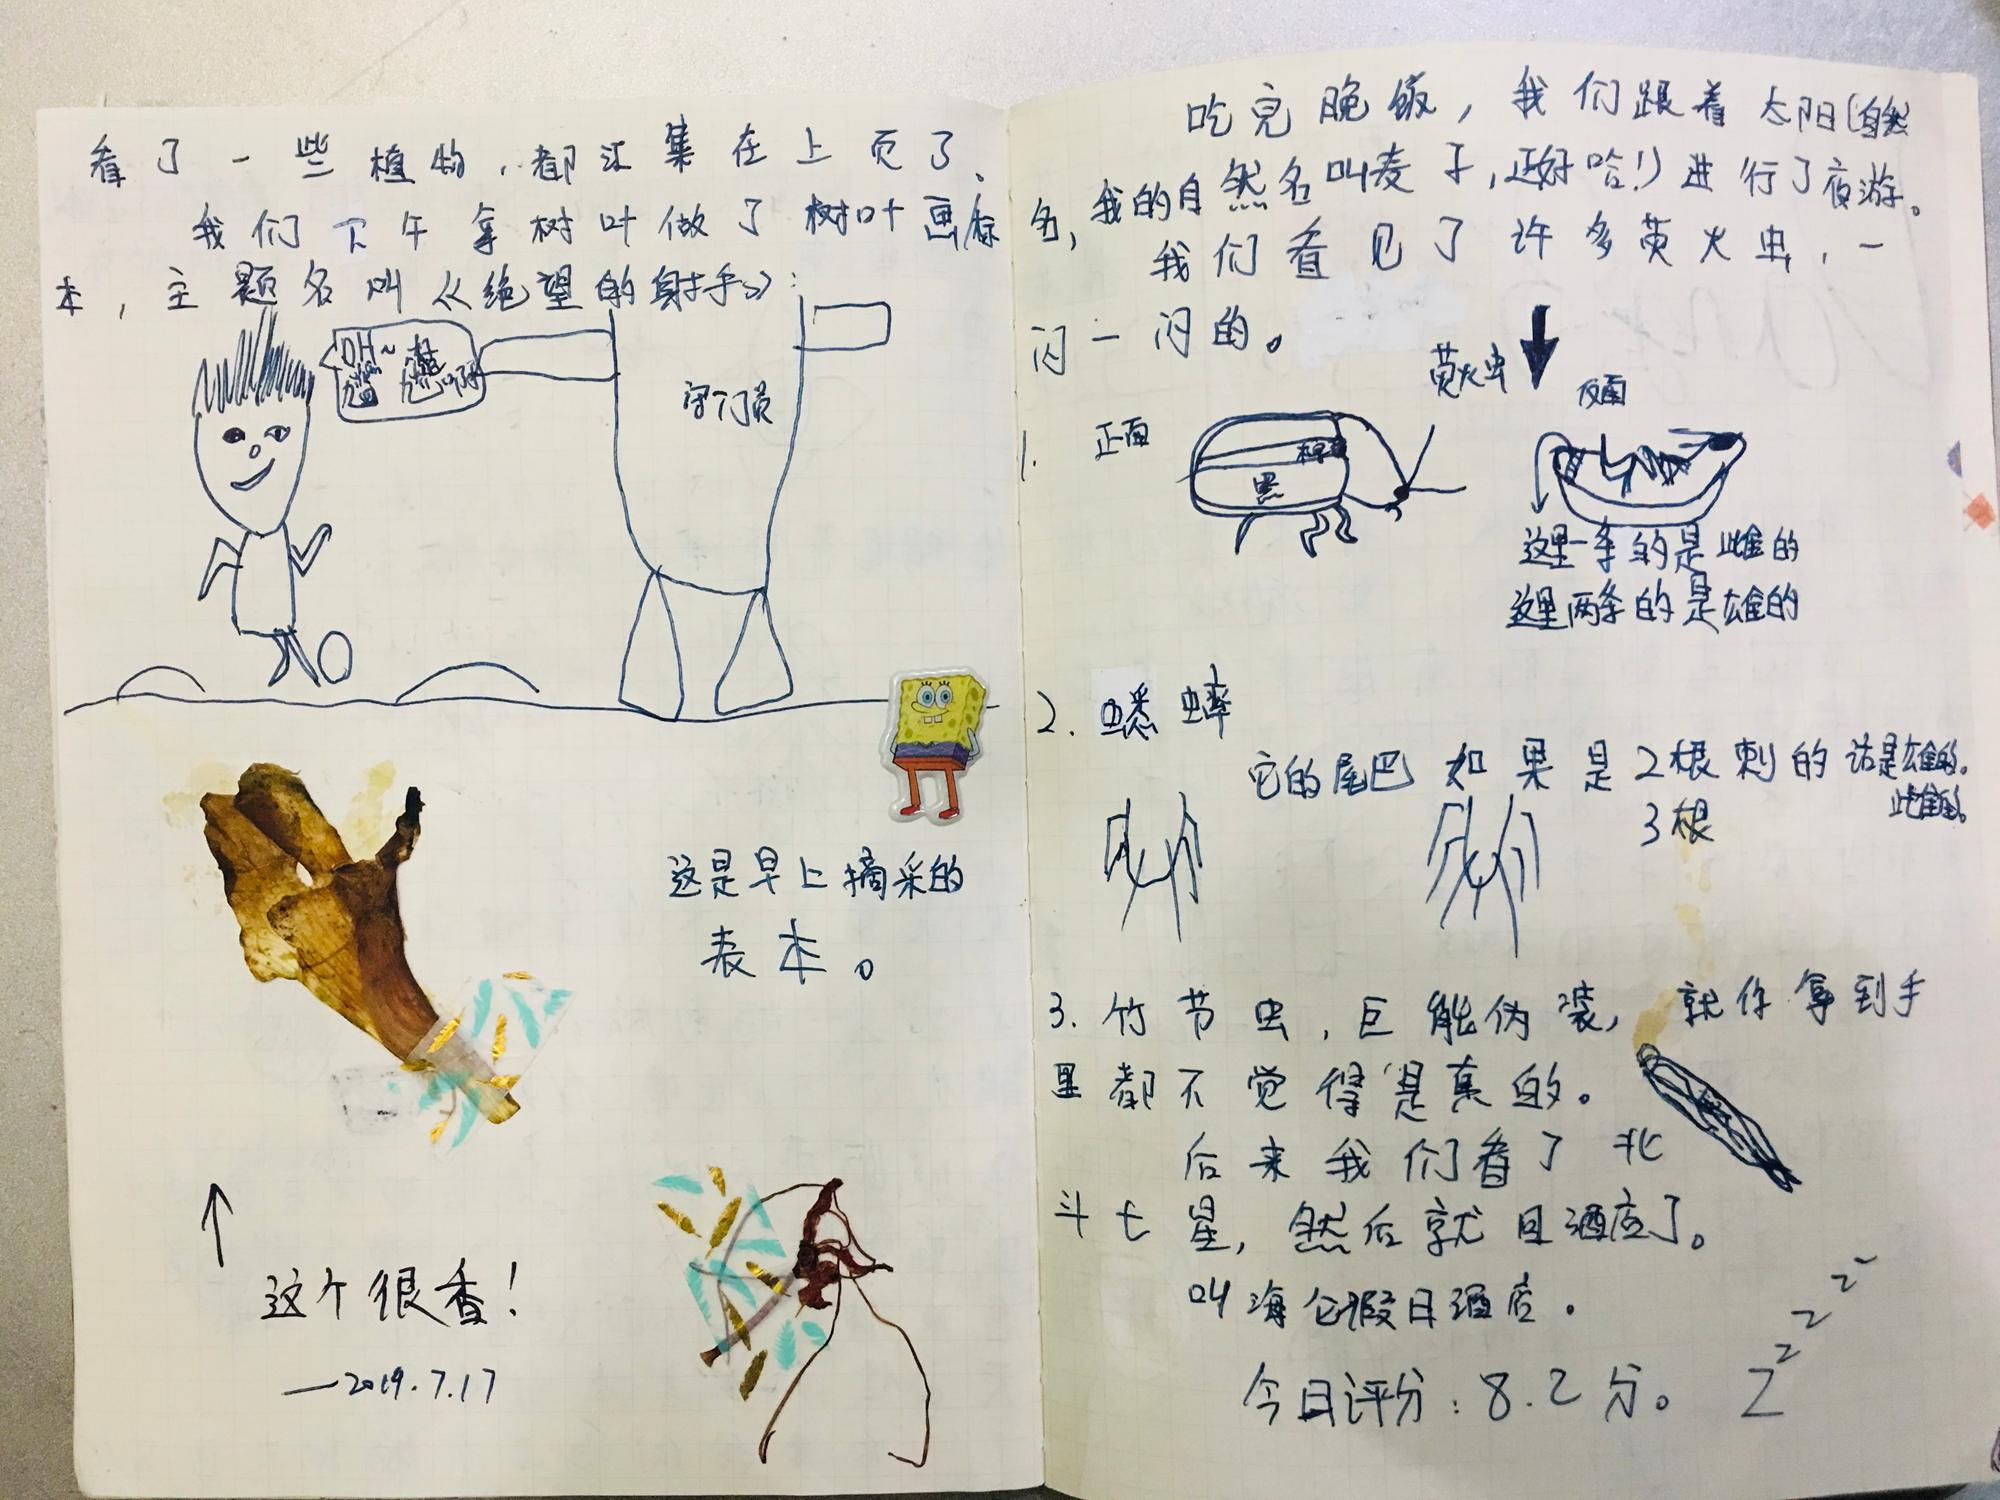 看了一些植物,都汇集在上页了、
我们下午拿树叶做了树叶画标
本,主题名叫《绝望的射手》:
OH~
尴尬啊
守门员
这是早上摘采的
表本。
这个很香!
—2019.7.17
吃完晚饭,我们跟着太阳(自然
名,我的自然名叫麦子,正好哈!)进行了夜游。
我们看见了许多萤火虫,一
闪一闪的。
萤火虫
1. 正面
反面
黑
这里一条的是雌的
这里两条的是雄的
2. 蟋蟀
它的尾巴如果是2根刺的话是雄的。
3根
雌的。
3. 竹节虫,巨能伪装,就你拿到手
里都不觉得是真的。
后来我们看了北
斗七星,然后就回酒店了。
叫海仑假日酒店。
今日评分:8.2分。
Z Z Z Z